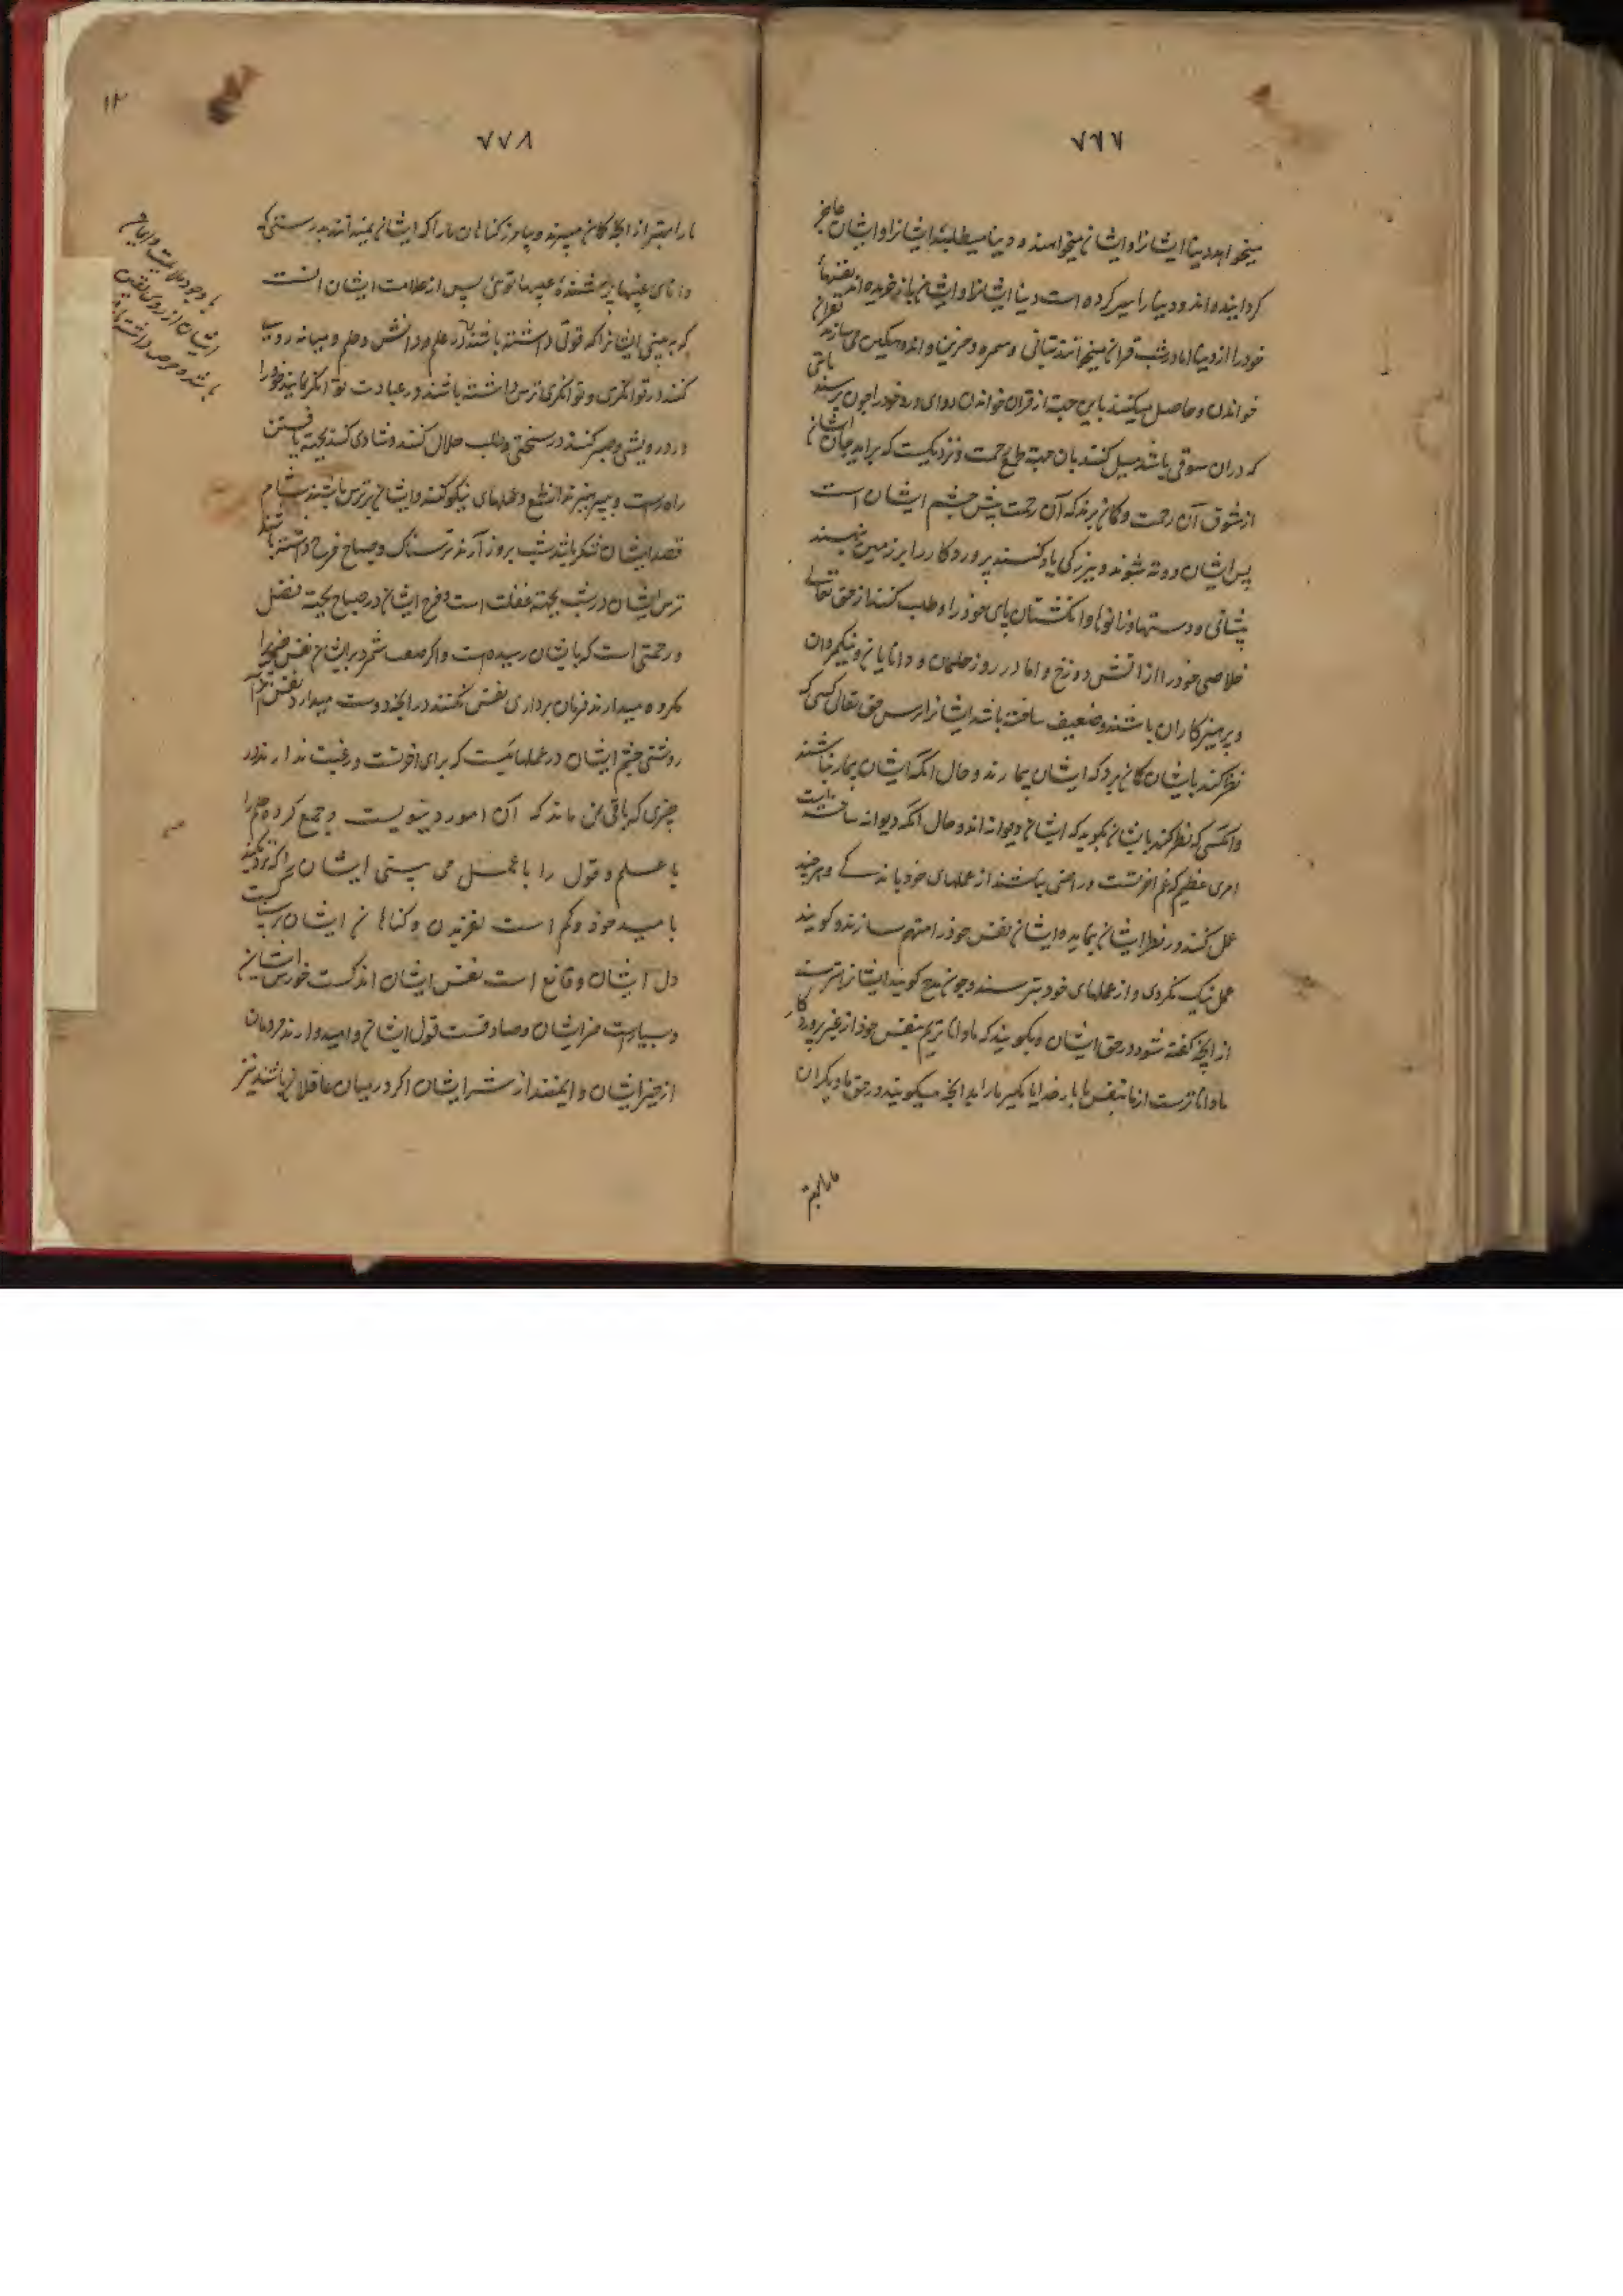 ۷۷۷
میخواهد دنیا ایشانرا و ایشان نمیخواهند و دنیا میطلبد ایشانرا و ایشان عاجز
کردانیده‌اند و دنیا را سیر کرده است دنیا ایشانرا و ایشان باز خریده‌اند نفسهای
خود را از دنیا اما در شب قران میخوانند و حزین و اندوهکین می‌سازند
خواندن و حاصل میکنند باین جهة از قران خواندن دوای درد خود را چون برسند
که در آن شوقی باشد میل کنند بآن جهة طمع رحمت و نزدیکست که براید جان ایشان
از شوق آن رحمت و کمان برند که آن رحمت پیش چشم ایشان است
پس ایشان دوته شوند و ببزرکی یاد کنند پروردکار را بر زمین نهند
پیشانی و دستها و زانوها و انکشتان پای خود را و طلب کنند از حق تعالی
خلاصی خود را از اتش دوزخ و اما در روز حلیمان و دانایان و نیکمردان
و پرهیزکاران باشند و ضعیف ساخته باشد ایشانرا ترس حق تعالی کسی که
نظر کند بایشان کمان برد که ایشان بیمارند و حال انکه ایشان بیمار نباشند
و انکسی که نظر کند بایشان بکوید که ایشان دیوانه‌اند و حال انکه دیوانه ساخته
امری عظیم که غم اخرتست و راضی نباشند از عملهای خود باندکی و هرچند
عمل کنند در نظر ایشان نماید و ایشان نفس خود را متهم سازند و کویند
عمل نیک نکردی و از عملهای خود بترسند و چون مدح کویند ایشانرا بترسند
از انچه کفته شود در حق ایشان و بکویند که ما داناتریم بنفس خود از غیر و پروردکار
ما داناترست از ما بنفس ما بار خدایا مکیر ما را بد انچه میکویند در حق ما دیکران
ما را بهتر
۷۷۸
ما را بهتر از انچه کمان میبرند و بیامرز کناهان ما را که ایشان نمیدانند بدرستی که
دانای غیبها و پوشنده عیبها توئی پس از علامت ایشان انست
که ببینی ایشانرا که قوتی داشته باشند در علم و دانش و حلم و میانه روی
کنند در توانکری و توانکری ترس داشته باشند در عبادت توانکر نمایند خود را
در درویشی و صبر کنند در سختی و طلب حلال کنند و شادی کنند بجهة یافتن
راه راست و بپرهیزند از طمع و عملهای نیکو کنند و ایشان بترس باشند بشام
قصد ایشان شکر باشد شب بروز آرند ترسناک و صباح فرح داشته باشند
ترس ایشان در شب بجهة غفلت است و فرح ایشان در صباح بجهة فضل
و رحمتی است که بایشان رسیده است و اکر صعب شمرد بر ایشان نفس چیزیرا
مکروه میدارند فرمان برداری نفس نکنند در انچه دوست میدارد نفس
روشنی چشم ایشان در عملهائیست که برای اخرتست و رغبت ندارند در
چیزی که باقی نمی ماند که آن امور دنیویست و جمع کرده حلم را
با علم و قول را با عمل می بینی ایشان را که نزدیکند
بامید خود و کم است لغزیدن و کناهان ایشان ترسناکست
دل ایشان و قانع است نفس ایشان اندکست خورش ایشان
و بسیارست خیر ایشان و صادقست قول ایشان و امیدوارند مردمان
از خیر ایشان و ایمنند از شر ایشان اکر در میان غافلان باشند نیز
با وجود ملایمت و ایمان
ایشان از روی یقین
باشد و حرص داشته باشند